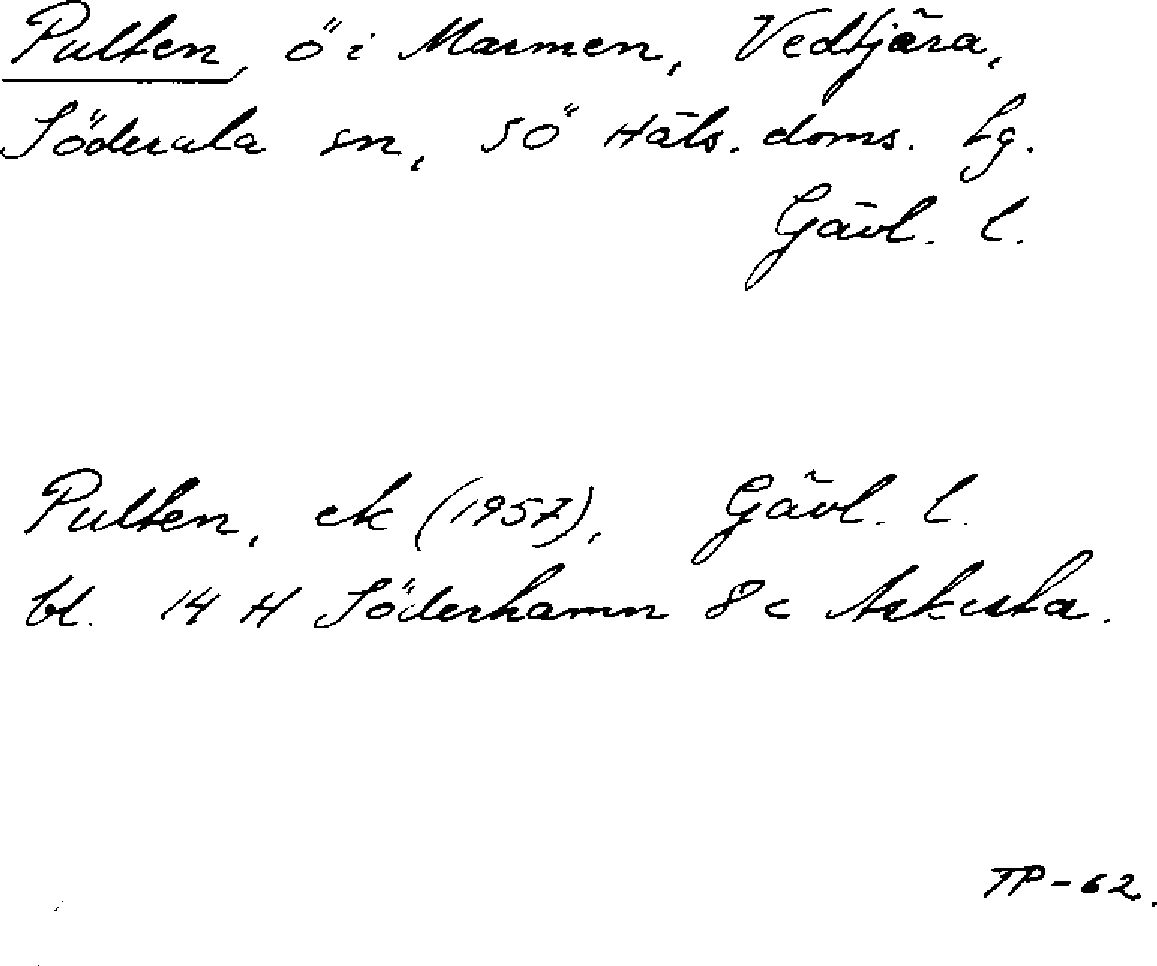 Pulten, ö i Marmen, Vedtjära,
Söderala sn, SÖ Häls. doms. Lg.
Gävl. l.
Pulten, ek (1957), Gävl. l.
bl. 14 H Söderhamn 8 c Askesta.
TP-62.